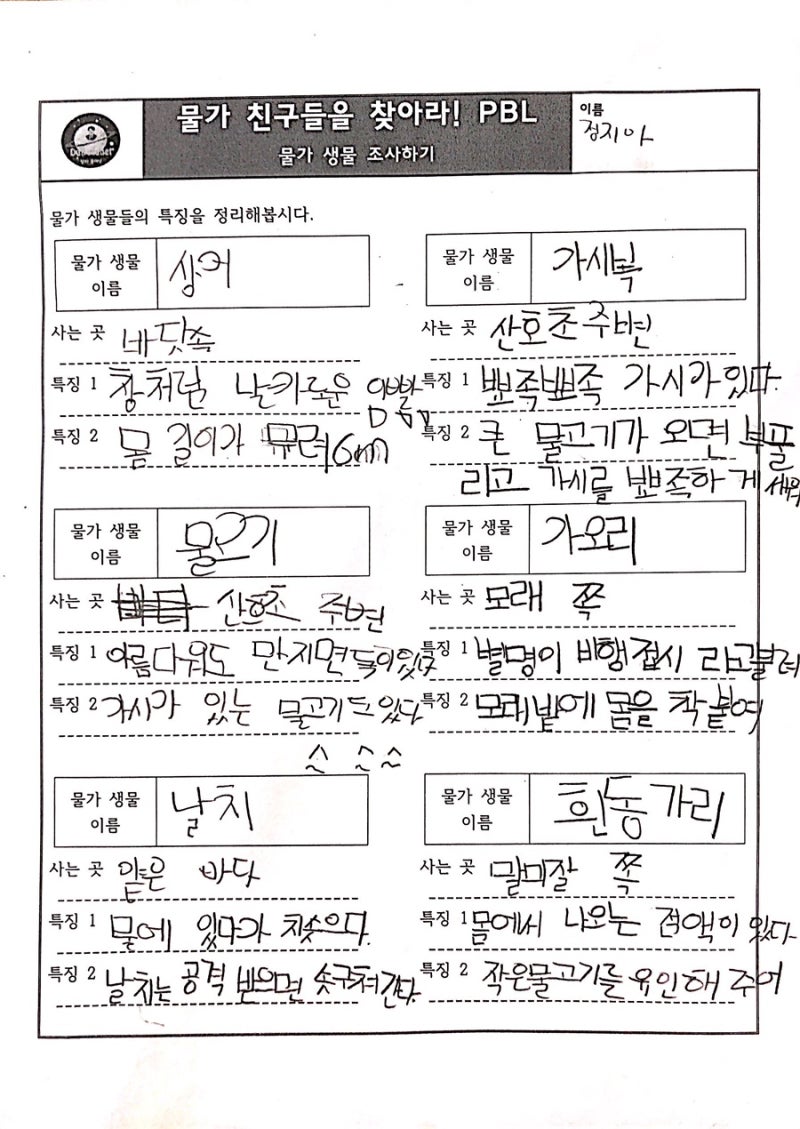 물가 친구들을 찾아라! PBL
물가 생물 조사하기
이름
정지아
물가 생물들의 특징을 정리해봅시다.
물가 생물 이름 상어
사는 곳 바닷속
특징 1 창처럼 날카로운 이빨
특징 2 몸 길이가 무려 6m
물가 생물 이름 가시복
사는 곳 산호초 주변
특징 1 뾰족뾰족 가시가 있다.
특징 2 큰 물고기가 오면 부풀
리고 가시를 뾰족하게 세워
물가 생물 이름 물고기
사는 곳 산호초 주변
특징 1 아름다워도 만지면 독이 있다
특징 2 가시가 있는 물고기도 있다
물가 생물 이름 가오리
사는 곳 모래 쪽
특징 1 별명이 비행접시 라고 불려
특징 2 모래밭에 몸을 착 붙여
물가 생물 이름 날치
사는 곳 얕은 바다
특징 1 물에 있다가 치솟으다.
특징 2 날치는 공격 받으면 솟구쳐 간다.
물가 생물 이름 흰동가리
사는 곳 말미잘 쪽
특징 1 몸에서 나오는 점액이 있다
특징 2 작은물고기를 유인해 주어